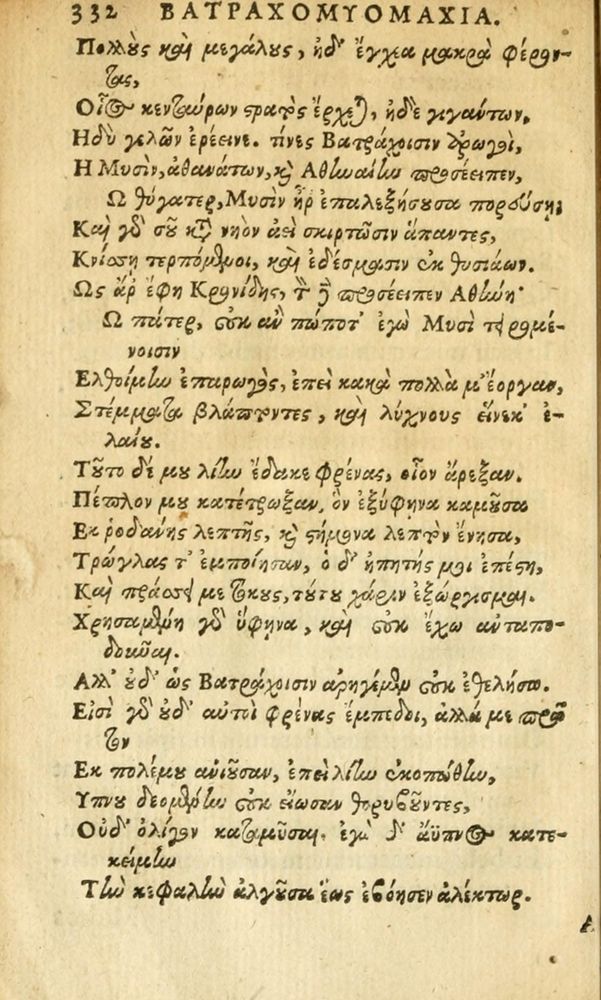 332 ΒΑΤΡΑΧΟΜΥΟΜΑΧΙΑ.
Πολλοὺς καὶ μεγάλους, ἠδ' ἔγχεα μακρὰ φέρον-
τας,
Οἷος κενταύρων στρατὸς ἔρχεται, ἠδὲ γιγάντων,
Ηδὺ γελῶν ἐρέεινε. τίνες Βατράχοισιν ἀρωγοὶ,
Η Μυσὶν, ἀθανάτων, καὶ Αθηναίην προσέειπεν,
Ω θύγατερ, Μυσὶν ἦρ ἐπαλεξήσουσα πορεύσῃ;
Καὶ γὸ σοῦ κατὰ νηὸν ἀεὶ σκιρτῶσιν ἅπαντες,
Κνίσσῃ τερπόμενοι, καὶ ἐδέσμασιν ἐκ θυσιάων.
Ως ἄρ ἔφη Κρονίδης, τὸν δὲ προσέειπεν Αθήνη·
Ω πάτερ, οὐκ ἂν πώποτ' ἐγὼ Μυσὶ τειρομέ-
νοισιν
Ελθοίμην ἐπαρωγὸς, ἐπεὶ κακὰ πολλὰ μ' ἔοργαν,
Στέμματα βλάπτοντες, καὶ λύχνους εἵνεκ' ἐ-
λαίου.
Τοῦτο δέ μου λίην ἔδακε φρένας, οἷον ἄρεξαν.
Πέπλον μου κατέτρωξαν, ὃν ἐξύφηνα καμοῦσα
Εκ ῥοδανῆς λεπτῆς, καὶ στήμονα λεπτὸν ἔνησα,
Τρώγλας τ' ἐμποίησαν, ὁ δ' ἠπητής μοι ἐπέστη,
Καὶ πράσσει με τόκους, τούτου χάριν ἐξώργισμαι.
Χρησαμένη γὸ ὕφηνα, καὶ οὐκ ἔχω ἀνταπο-
δοῦναι.
Αλλ' οὐδ' ὣς Βατράχοισιν ἀρηγέμεν οὐκ ἐθελήσω.
Εἰσὶ γὸ οὐδ' αὐτοὶ φρένας ἔμπεδοι, ἀλλά με πρῶ
τον
Εκ πολέμου ἀνιοῦσαν, ἐπεὶ λίην ἐκοπώθην,
Υπνου δεομένην οὐκ εἴασαν θορυβοῦντες,
Οὐδ' ὀλίγον καταμῦσαι. ἐγὼ δ' ἄϋπνος κατε-
κείμην
Τὴν κεφαλὴν ἀλγοῦσα ἕως ἐβόησεν ἀλέκτωρ.